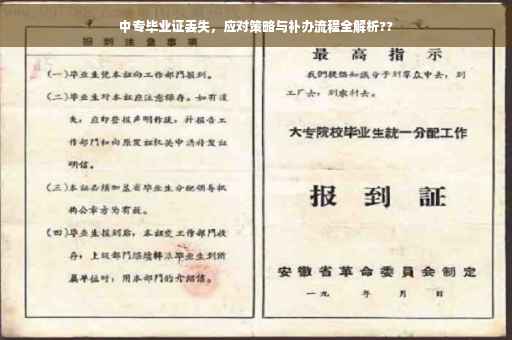 中专毕业证丢失，应对策略与补办流程全解析??
报到注意事项
(一)毕业生凭本证向工作部门报到。
(二)毕业生对本证应注意保存。如有遗
失，应即登报声明作废，并报告工
作部门和向原发证机关申请补发证
明信。
(三)本证必须加盖省毕业生分配领导机
构公章方为有效。
(四)毕业生报到后，本证交工作部门收
存；上级部门
毕业生到所
属单位时，用本部门的介绍信。
最高指示
我们提倡知识分子到群众中去，到
工厂去，到农村去。
大专院校毕业生統一分配工作
报到証
安徽省革命委員会制定
一九 年 月 日